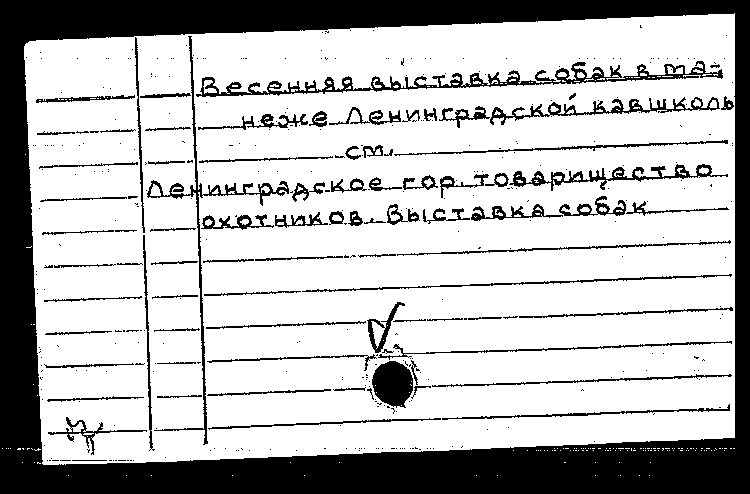 Весенняя выставка собак в ма-
неже Ленинградской кавшколы
см.
Ленинградское гор. товарищество
охотников. Выставка собак